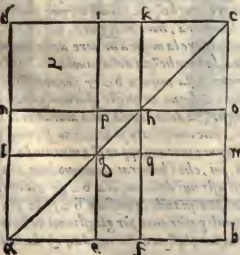 d i k c
2
n p h o
l g q m
a e f b